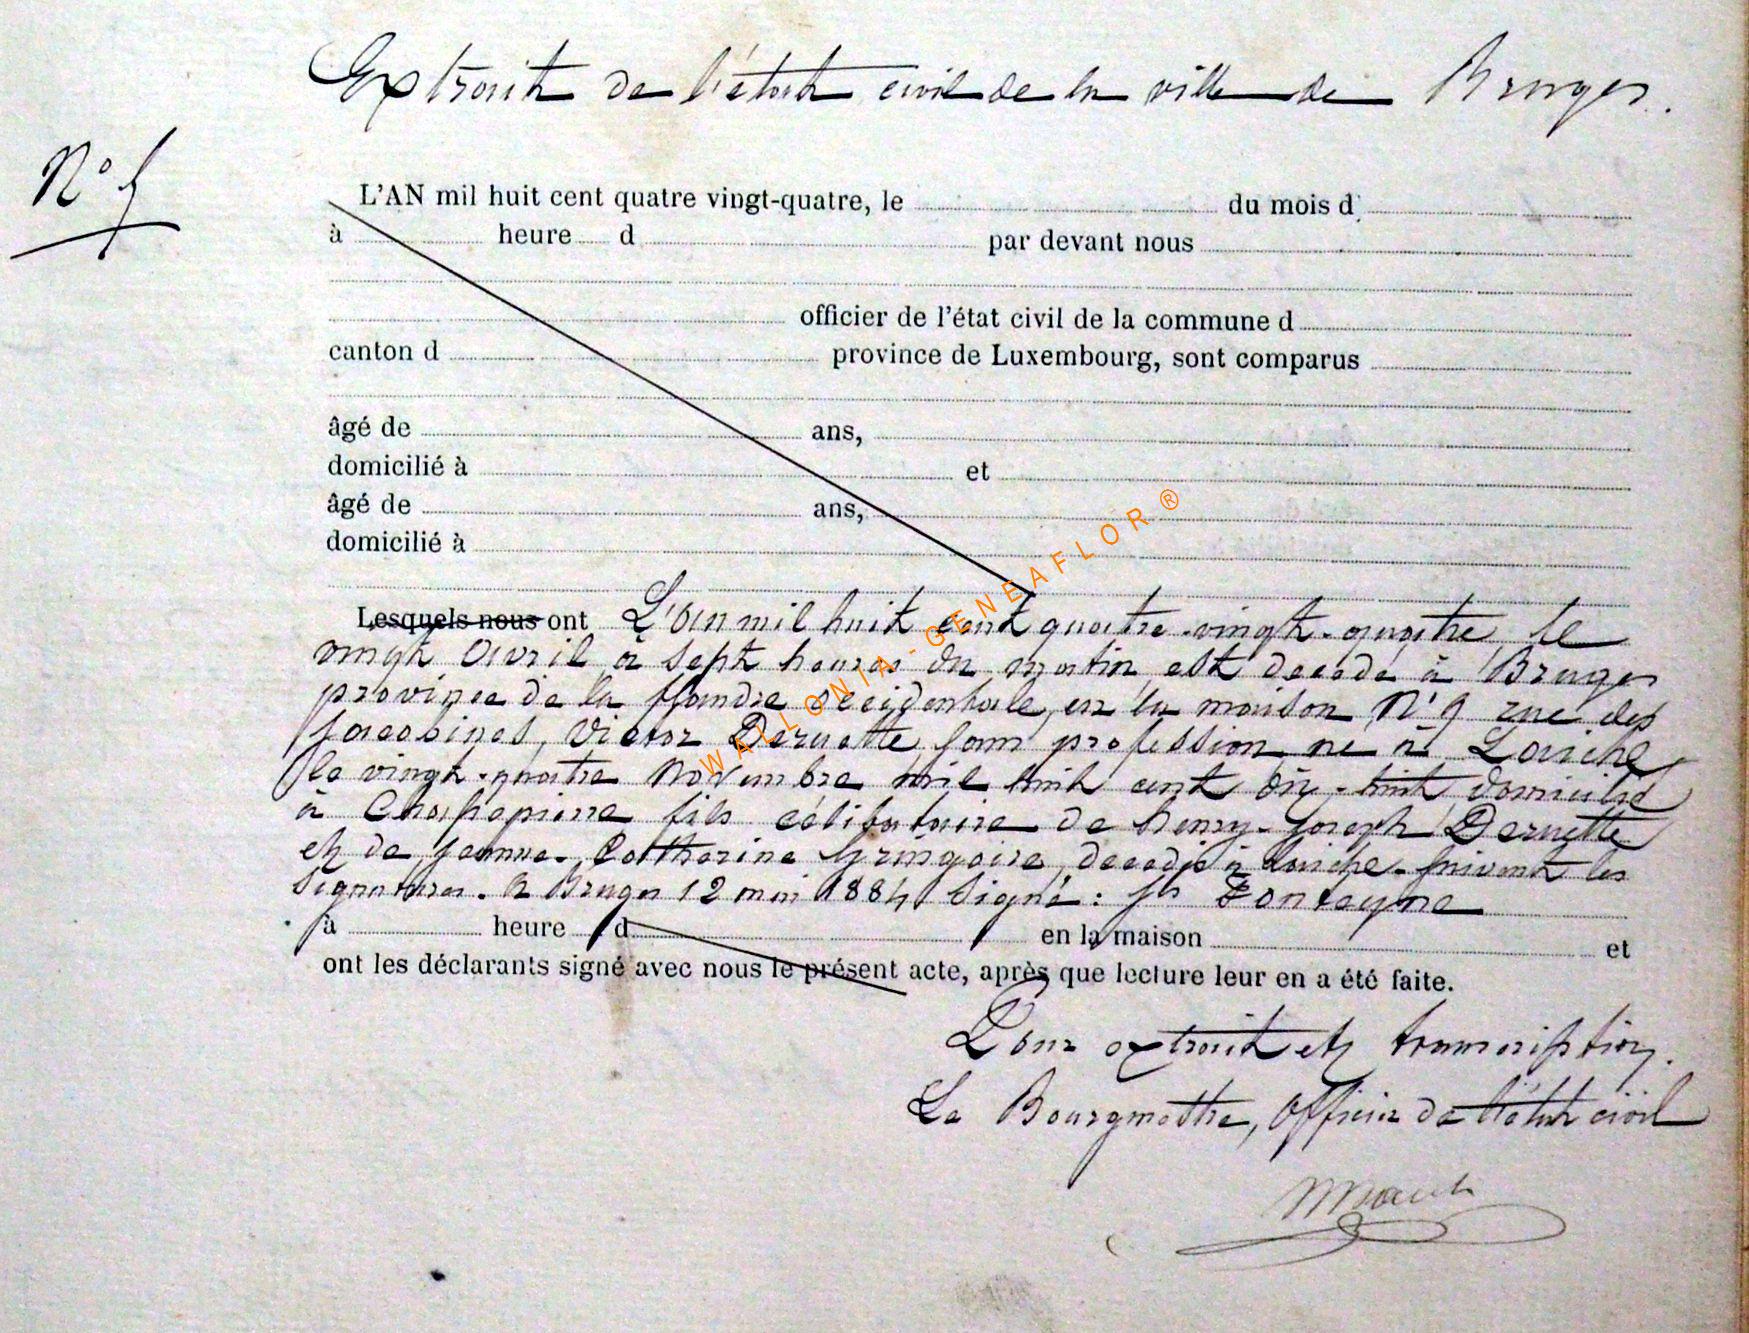 Extrait de l'état civil de la ville de Bruges.
N° 5
L'AN mil huit cent quatre vingt-quatre, le du mois d
à heure d par devant nous
officier de l'état civil de la commune d
canton d province de Luxembourg, sont comparus
âgé de ans,
domicilié à et
âgé de ans,
domicilié à
Lesquels nous ont L'an mil huit cent quatre-vingt-quatre, le
vingt avril à sept heures du matin est decede à Bruges
province de la flandre occidentale, en la maison N° 9 rue des
Jacobines, Victor Deruette sans profession ne à Loiche
le vingt-quatre Novembre mil huit cent dix-huit domicilié
à Chapepierre fils célibataire de henry-Joseph Deruette
et de Jeanne-Catherine Gringoire, decedés à Loiche. suivent les
signatures. A Bruges 12 mai 1884 signé: Js Fonteyne
à heure d en la maison et
ont les déclarants signé avec nous le présent acte, après que lecture leur en a été faite.
Pour extrait et transcription.
Le Bourgmestre, Officier de l'état civil
WALLONIA-GENEAFLOR ®